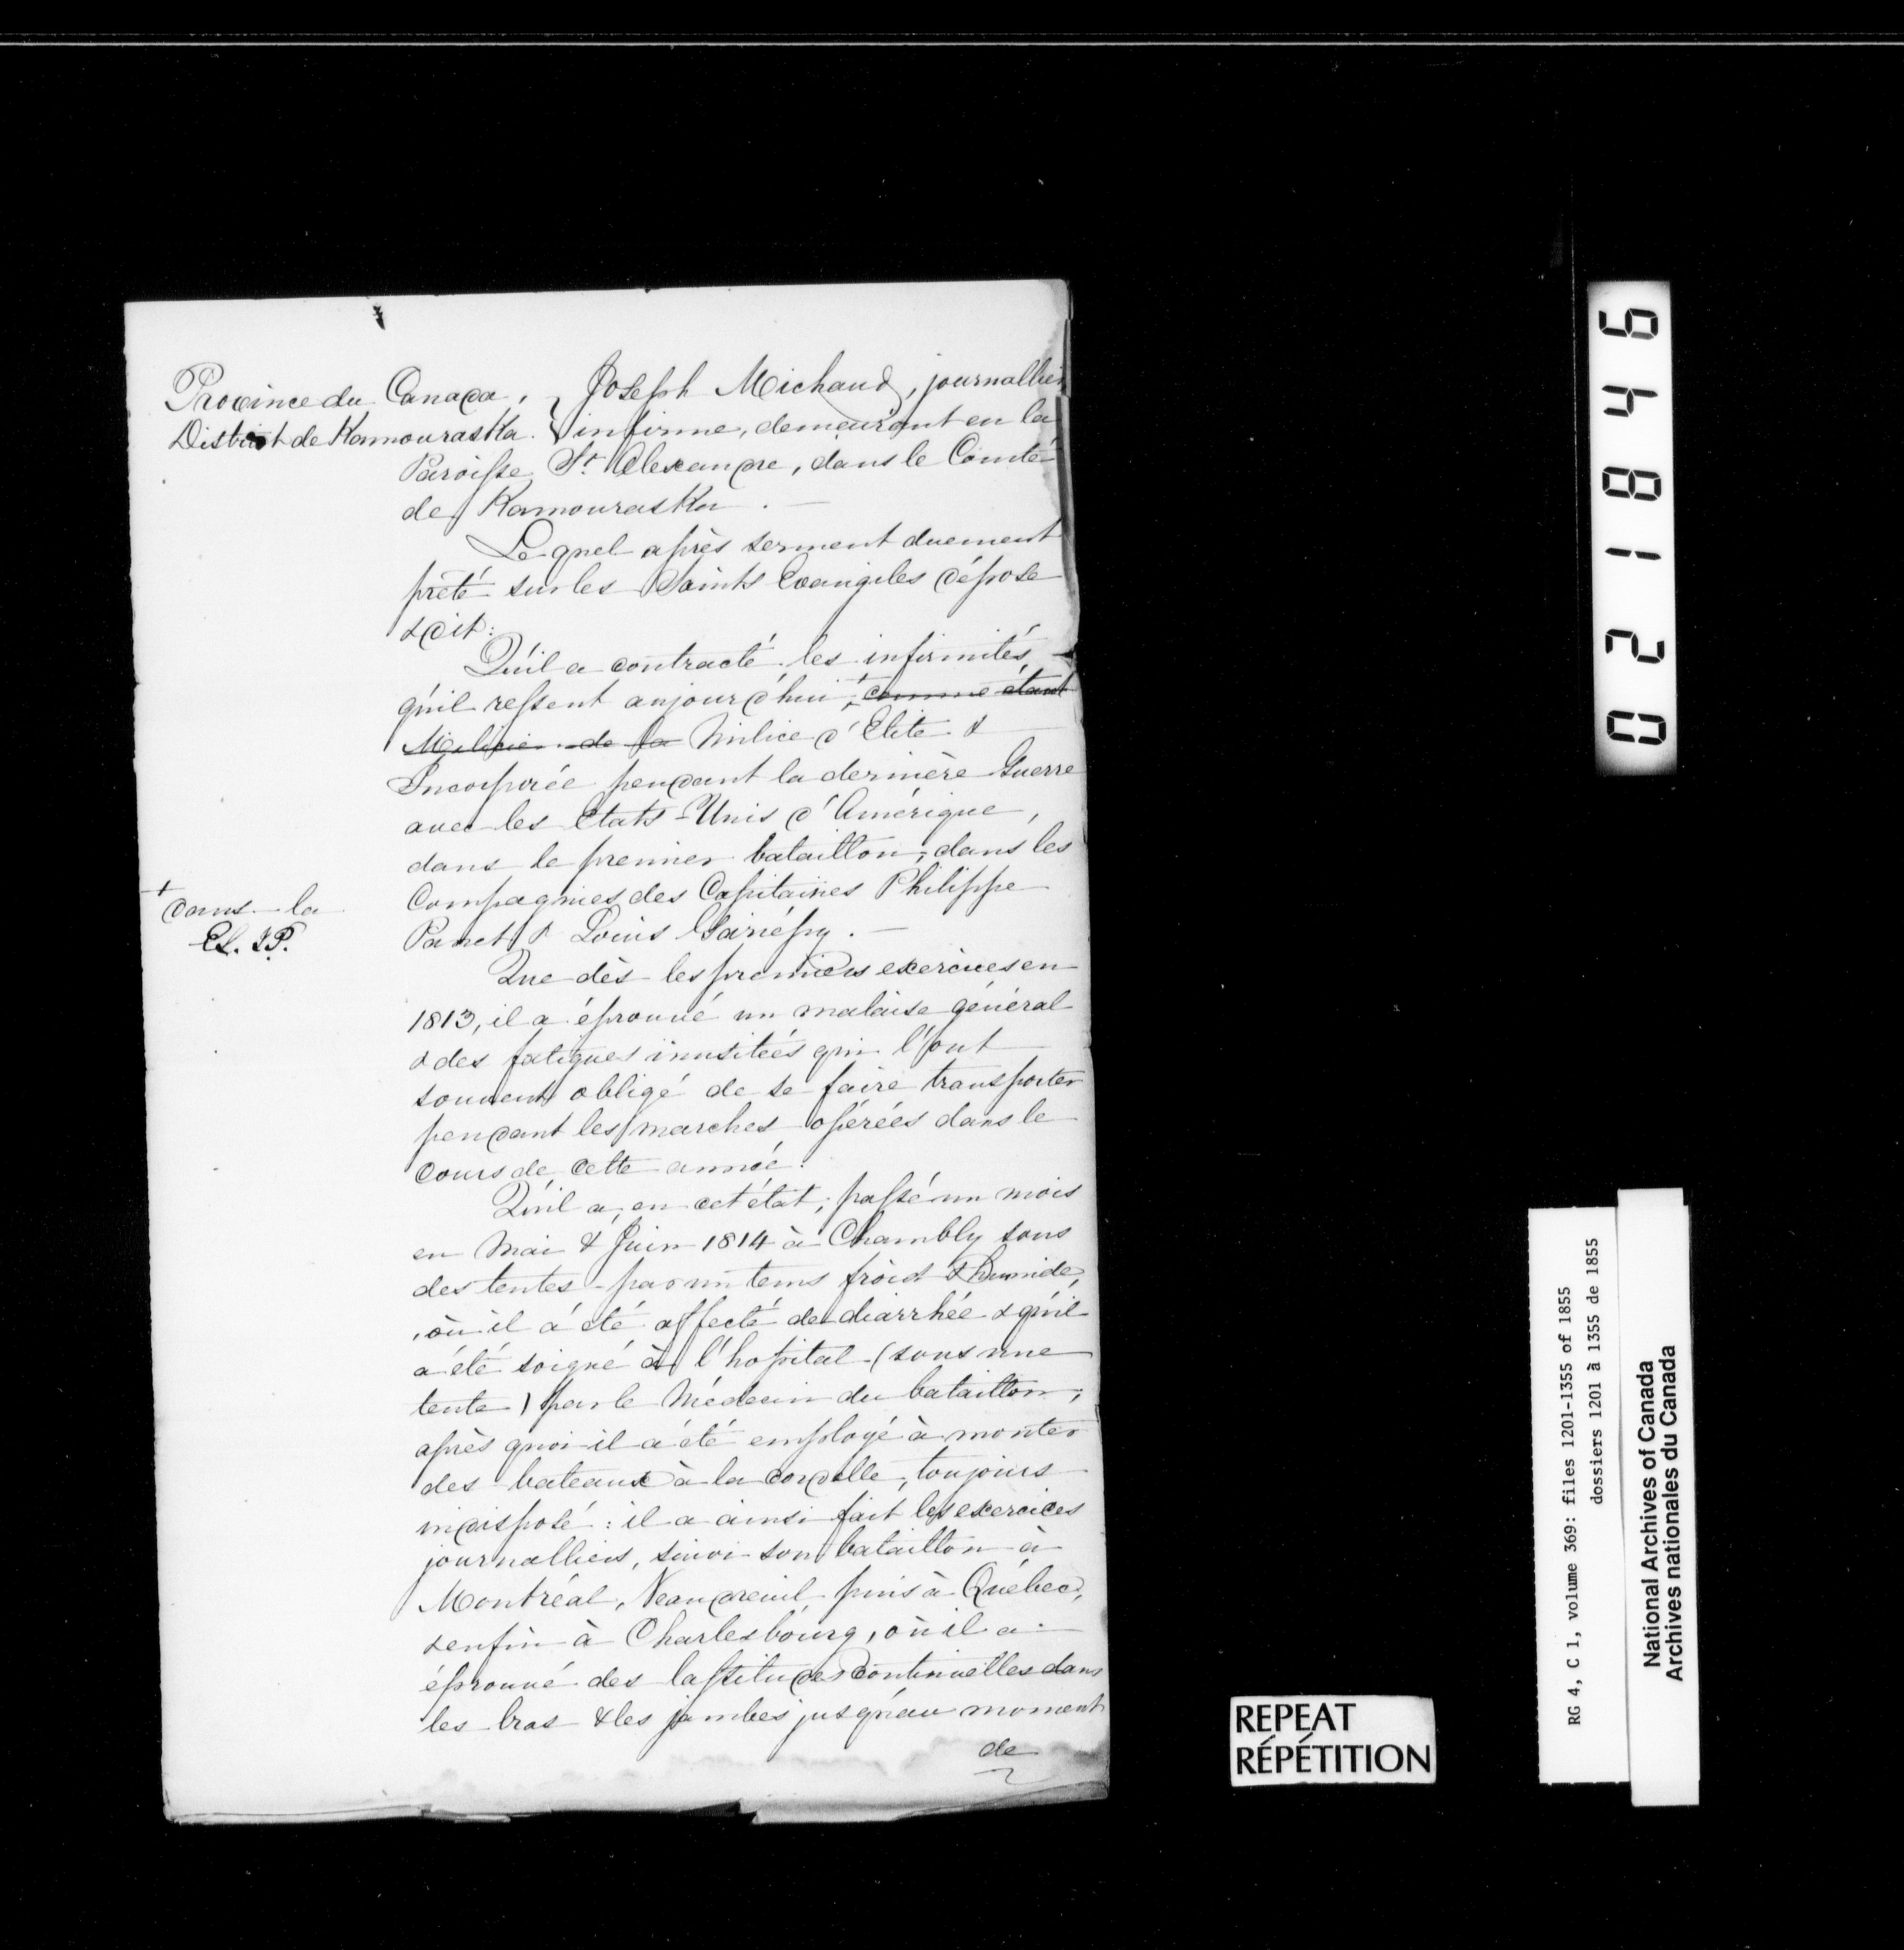 Province du Canada, } Joseph Michaud, journallier
District de Kamouraska. } infirme, demeurant en la
Paroisse St. Alexandre, dans le Comté
de Kamouraska. —
Lequel après serment duement
prêté sur les Saints Evangiles dépose
& dit:
Qu'il a contracté les infirmités,
qu'il ressent aujourd'hui, + comme étant
Milicien de la Milice d'Elite &
Incorporée pendant la dernière Guerre
avec les Etats-Unis d'Amérique,
dans le premier bataillon, dans les
+
dans la
Compagnies des Capitaines Philippe
Panet & Louis Gariépy. —
Que dès les premiers exercices en
1813, il a éprouvé un malaise général
& des fatigues inusitées qui l'ont
souvent obligé de se faire transporter
pendant les marches opérées dans le
cours de cette année.
Qu'il a, en cet état, passé un mois
en Mai & Juin 1814 à Chambly sous
des tentes par un tems froid & humide,
où il a été affecté de diarrhée & qu'il
a été soigné à l'hopital (sous une
tente) par le Médecin du bataillon;
après quoi il a été employé à monter
des bateaux à la cordelle, toujours
indisposé: il a ainsi fait les exercices
journalliers, suivi son bataillon à
Montréal, Vaudreuil, puis à Québec,
& enfin à Charlesbourg, où il a
éprouvé des lassitudes continuelles dans
les bras & les jambes jusqu'au moment
de
021846
RG 4, C 1, volume 369: files 1201-1355 of 1855
dossiers 1201 à 1355 de 1855
National Archives of Canada
Archives nationales du Canada
REPEAT
RÉPÉTITION